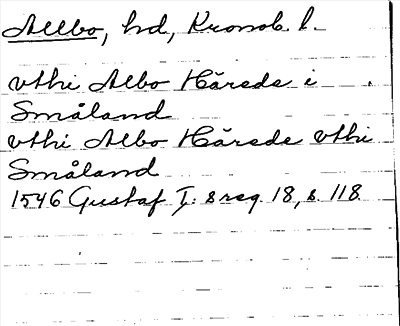 Allbo, hd, Kronob. l.
vthi Albo Härede i
Småland
vthi Albo Härede vthi
Småland
1546 Gustaf I: s reg. 18, s. 118